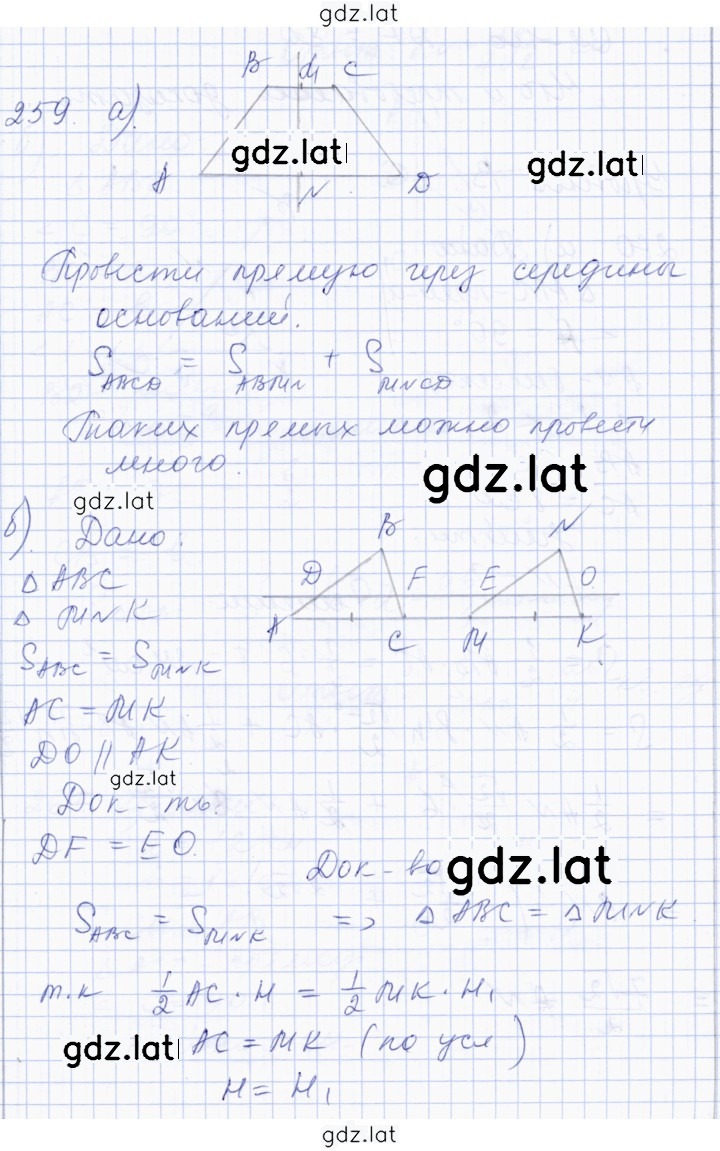 gdz.lat
259. а).
B M C
gdz.lat
gdz.lat
A N D
Провести прямую через середины
оснований.
S ABCD = S ABMN + S MNCD
Таких прямых можно провести
много.
gdz.lat
gdz.lat
б). Дано:
B N
D F E O
A C M K
△ ABC
△ MNK
S ABC = S MNK
AC = MK
DO || AK
gdz.lat
Док-ть:
DF = EO.
Док-во
gdz.lat
S ABC = S MNK => △ ABC = △ MNK
т.к 1/2 AC · H = 1/2 MK · H₁
gdz.lat
AC = MK (по усл)
H = H₁
gdz.lat